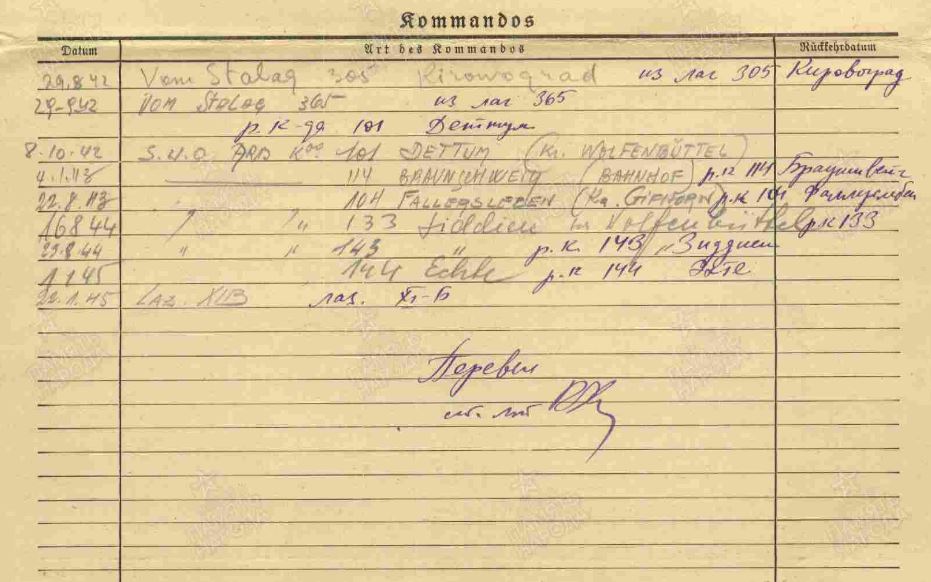 Kommandos
Datum Art des Kommandos Rückkehrdatum
29.8 42 Vom Stalag 305 Kirowograd из лаг 305 Кировоград
29-9.42 VOM Stalag 365 из лаг 365
р. к-да 101 Деттум
8-10-42 ARB Kdo 101 DETTUM (Kr. WOLFENBÜTTEL)
4.1.43 114 BRAUNSCHWEIG (BAHNHOF) р.к 114 Брауншвейг
22.8.43 104 FALLERSLEBEN (Kr. GIFHORN) р.к 104
16 8 44 " " 133 in Wolfenbüttel р.к 133
29.8.44 " " 143 " р.к. 143 "Зиддиен
1 1 45 144 р.к 144
22.1.45 LAZ. XI B лаз. XI-Б
Перевел
ст. лт